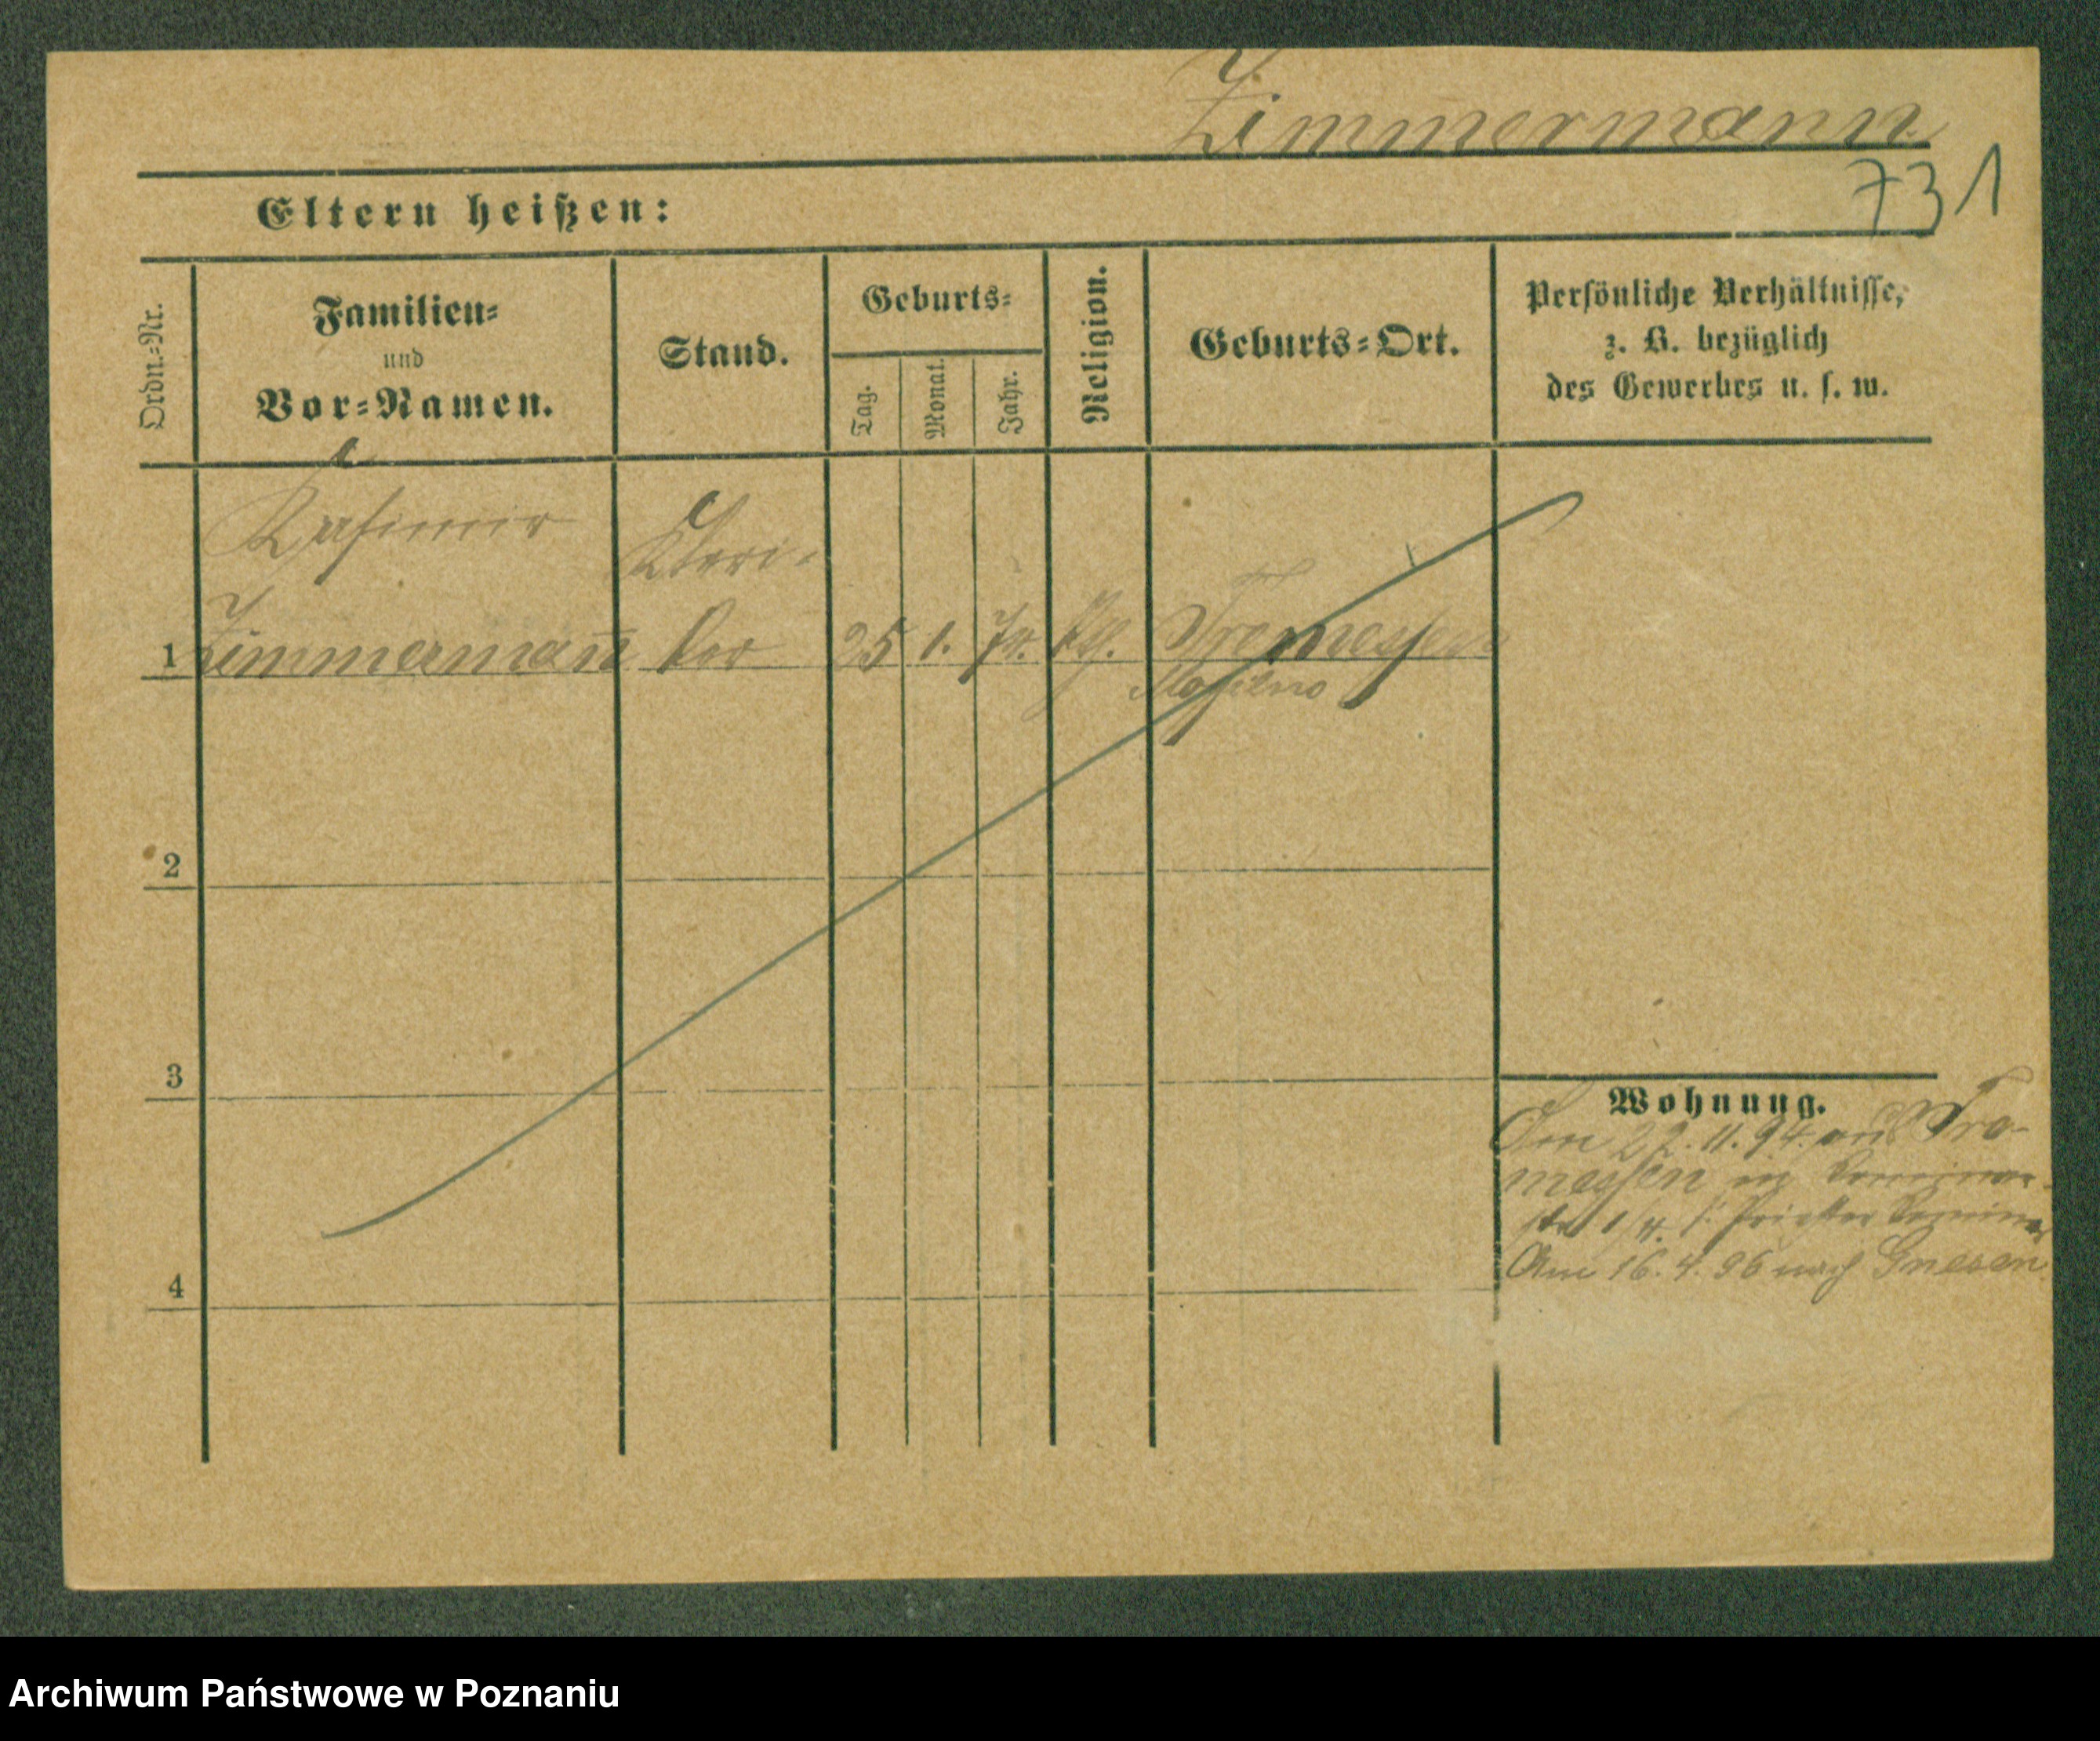 Zimmermann
731
Eltern heißen:
Ordn.=Nr.
Familien=
und
Vor=Namen.
Stand.
Geburts=
Tag.
Monat.
Jahr.
Religion.
Geburts=Ort.
Persönliche Verhältnisse,
z. B. bezüglich
des Gewerbes u. s. w.
Kasimir
Kleri=
1 Zimmermann ker 25 1. 74. kth. Tremessen
Mogilno
2
3
4
Wohnung.
Am 22.11.94. aus Tre-
messen in Seminar-
str 1/4. Priester Seminar
Am 16.4.96 nach Gnesen
Archiwum Państwowe w Poznaniu